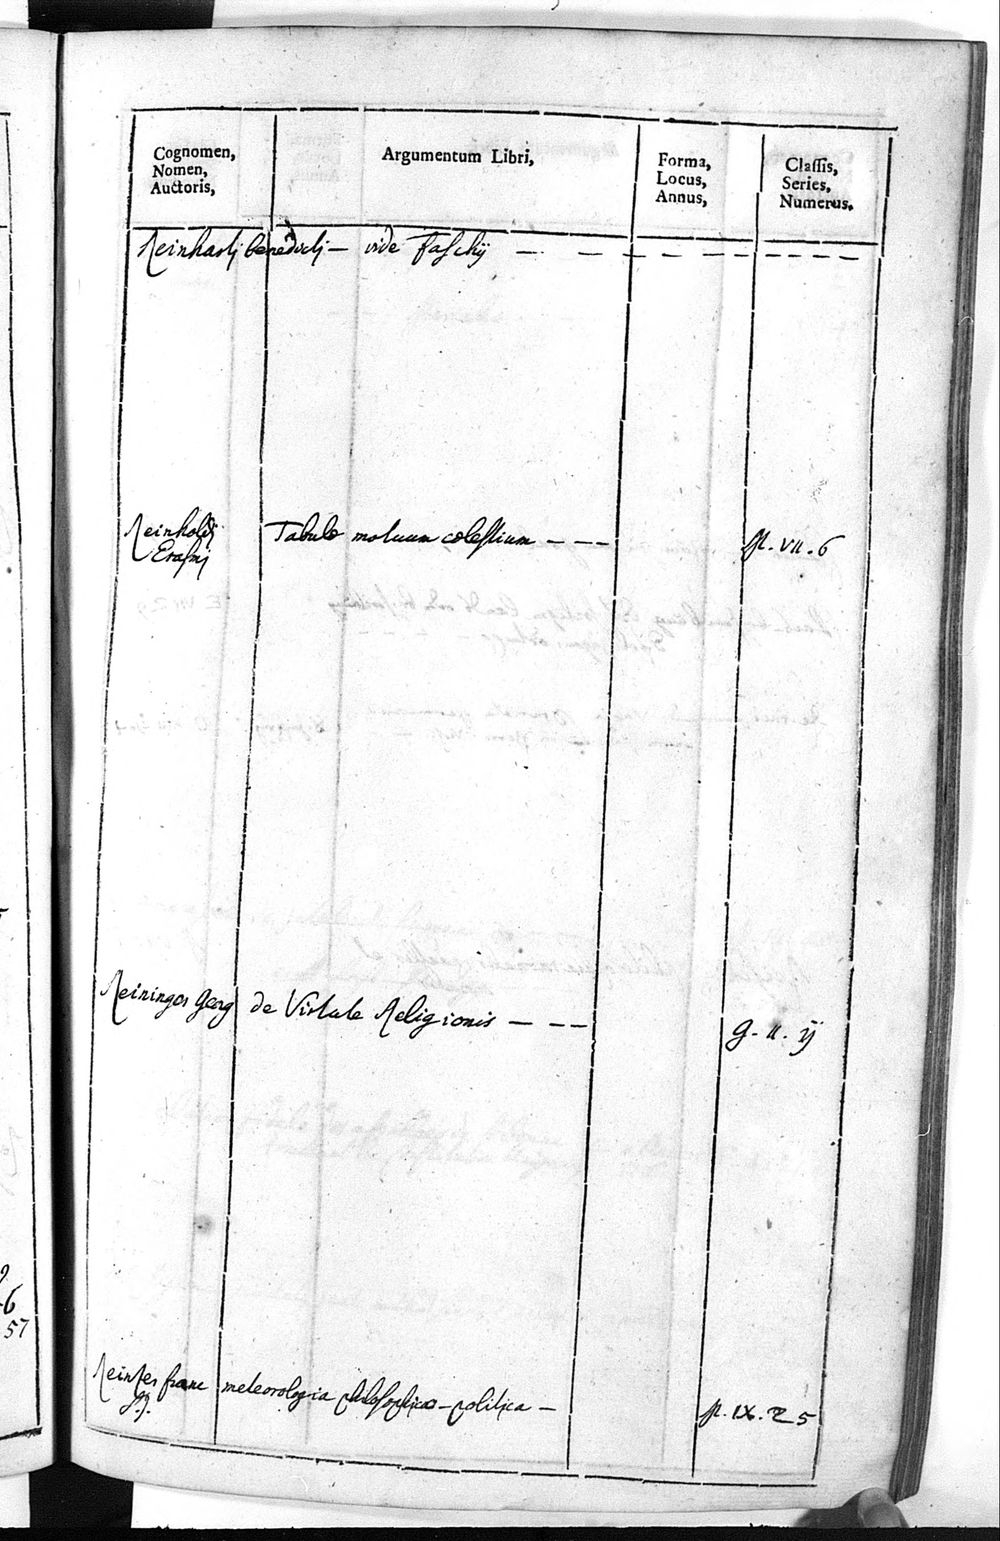 Cognomen,
Nomen,
Auctoris,
Argumentum Libri,
Forma,
Locus,
Annus,
Classis,
Series,
Numerus.
Reinhardj benedictj — vide Faschij — — — — — — — — —
Reinholdj
Erasmj
Tabulæ motuum cœlestium — — — —
VII. 6
Reininger Georg
de Virtute Religionis — — —
G. II. ij
Reinzer franc
S.J.
meteorologia philosophico-politica —
IX. 25
9
6
57